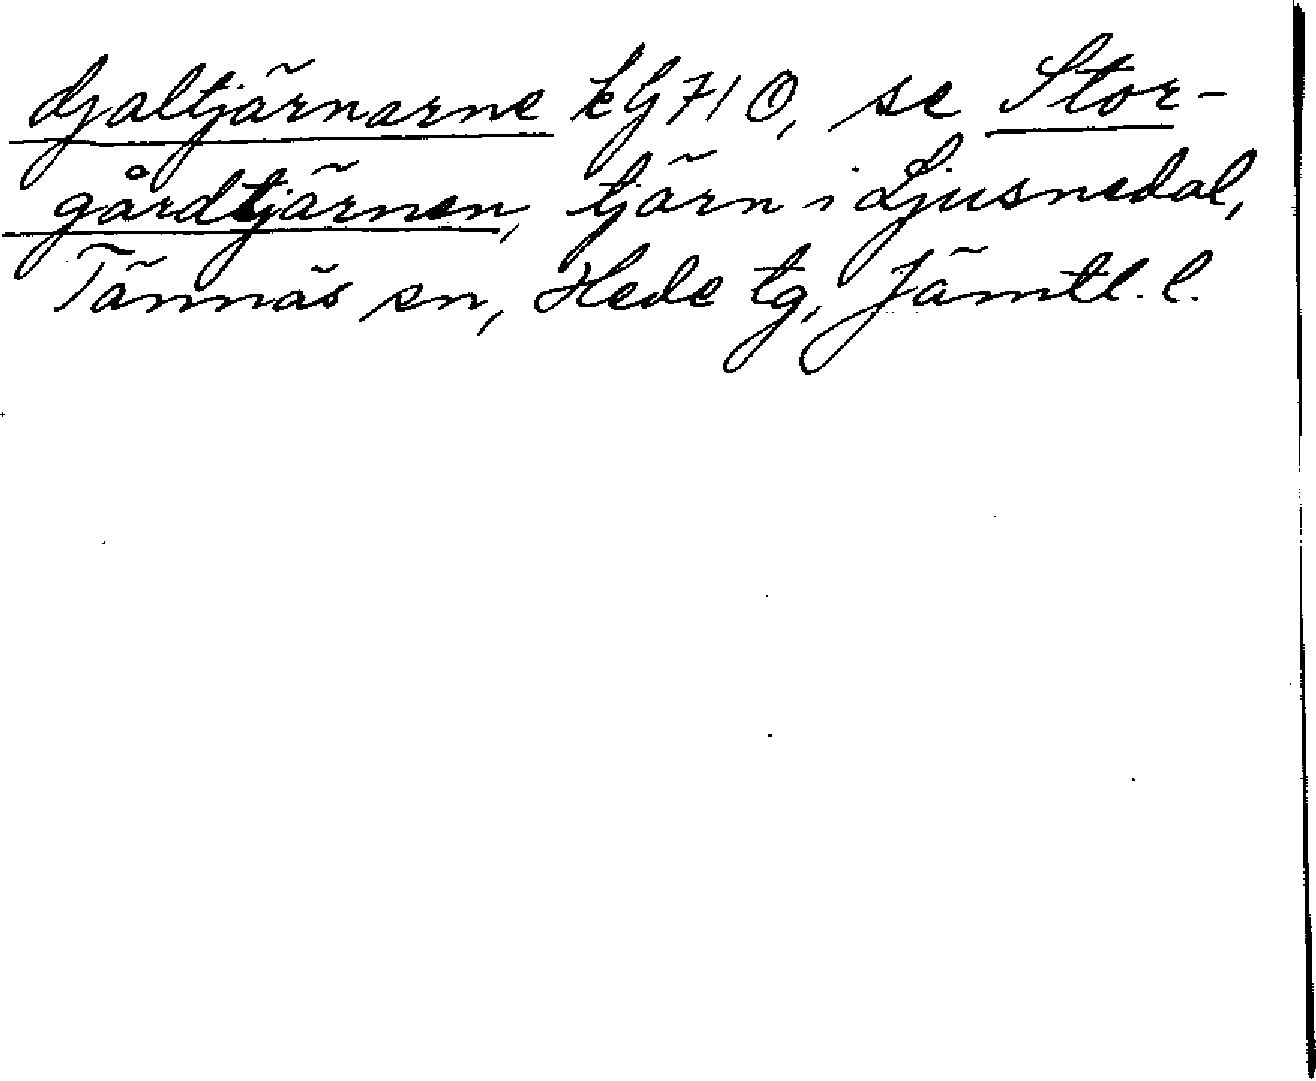 kG 71 O, se Stor-
gårdtjärnen, tjärn i Ljusnedal,
Tännäs sn, Hede tg, Jämtl. l.